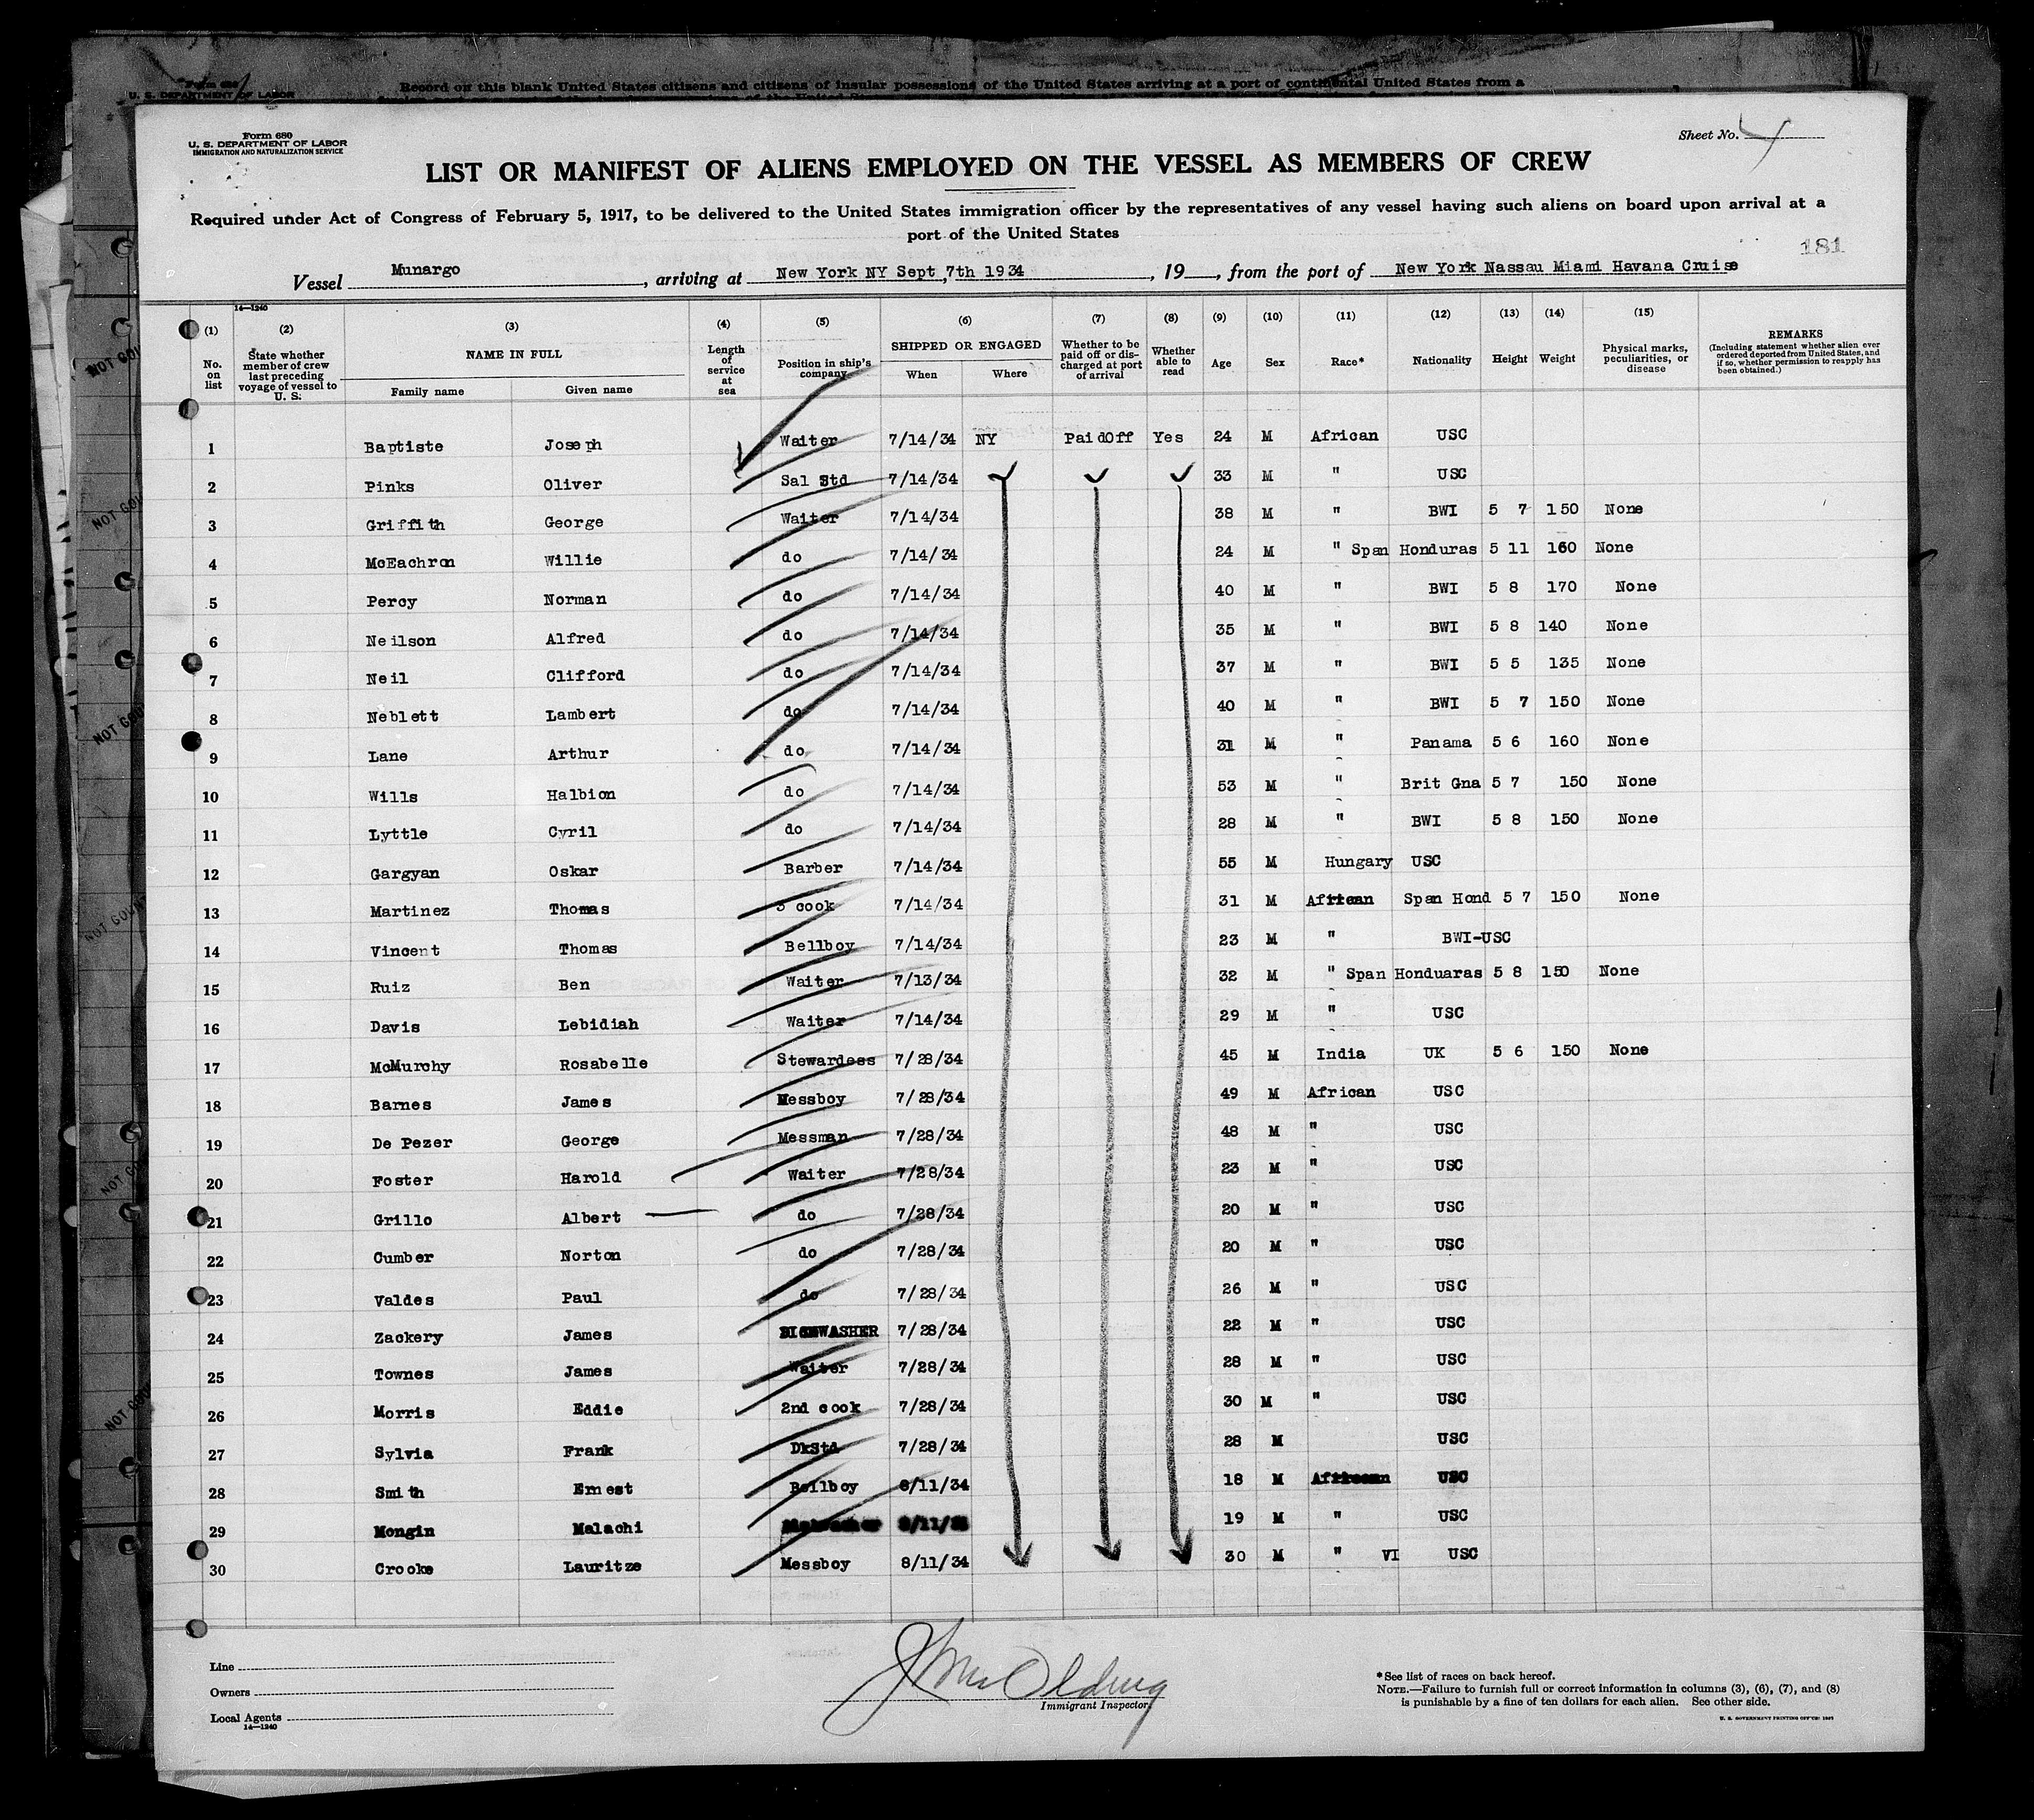 Form 680
U. S. DEPARTMENT OF LABOR
U. S. DEPARTMENT OF LABOR
Record on this blank United States citizens and citizens of insular possessions of the United States arriving at a port of continental United States from a
Form 680
U. S. DEPARTMENT OF LABOR
IMMIGRATION AND NATURALIZATION SERVICE
Sheet No. 4
LIST OR MANIFEST OF ALIENS EMPLOYED ON THE VESSEL AS MEMBERS OF CREW
Required under Act of Congress of February 5, 1917, to be delivered to the United States immigration officer by the representatives of any vessel having such aliens on board upon arrival at a
port of the United States
181
Vessel Munargo, arriving at New York NY Sept 7th 1934, 19, from the port of New York Nassau Miami Havana Cruise
14—1240
(1) (2) (3) (4) (5) (6) (7) (8) (9) (10) (11) (12) (13) (14) (15)
No. on list
State whether member of crew last preceding voyage of vessel to U. S.
NAME IN FULL
Family name Given name
Length of service at sea
Position in ship's company
SHIPPED OR ENGAGED
When Where
Whether to be paid off or discharged at port of arrival
Whether able to read
Age Sex Race* Nationality Height Weight
Physical marks, peculiarities, or disease
REMARKS
(Including statement whether alien ever ordered deported from United States, and if so, whether permission to reapply has been obtained.)
1 Baptiste Joseph Waiter 7/14/34 NY PaidOff Yes 24 M African USC
2 Pinks Oliver Sal Std 7/14/34 33 M " USC
3 Griffith George Waiter 7/14/34 38 M " BWI 5 7 150 None
4 McEachron Willie do 7/14/34 24 M " Span Honduras 5 11 160 None
5 Percy Norman do 7/14/34 40 M " BWI 5 8 170 None
6 Neilson Alfred do 7/14/34 35 M " BWI 5 8 140 None
7 Neil Clifford do 7/14/34 37 M " BWI 5 5 135 None
8 Neblett Lambert do 7/14/34 40 M " BWI 5 7 150 None
9 Lane Arthur do 7/14/34 31 M " Panama 5 6 160 None
10 Wills Halbion do 7/14/34 53 M " Brit Gna 5 7 150 None
11 Lyttle Cyril do 7/14/34 28 M " BWI 5 8 150 None
12 Gargyan Oskar Barber 7/14/34 55 M Hungary USC
13 Martinez Thomas 3 cook 7/14/34 31 M African Span Hond 5 7 150 None
14 Vincent Thomas Bellboy 7/14/34 23 M " BWI-USC
15 Ruiz Ben Waiter 7/13/34 32 M " Span Honduaras 5 8 150 None
16 Davis Lebidiah Waiter 7/14/34 29 M " USC
17 McMurchy Rosabelle Stewardess 7/28/34 45 M India UK 5 6 150 None
18 Barnes James Messboy 7/28/34 49 M African USC
19 De Pezer George Messman 7/28/34 48 M " USC
20 Foster Harold Waiter 7/28/34 23 M " USC
21 Grillo Albert do 7/28/34 20 M " USC
22 Cumber Norton do 7/28/34 20 M " USC
23 Valdes Paul do 7/28/34 26 M " USC
24 Zackery James DISHWASHER 7/28/34 22 M " USC
25 Townes James Waiter 7/28/34 28 M " USC
26 Morris Eddie 2nd cook 7/28/34 30 M " USC
27 Sylvia Frank DkStd 7/28/34 28 M USC
28 Smith Ernest Bellboy 8/11/34 18 M African USC
29 Mongin Malachi 8/11/34 19 M " USC
30 Crooke Lauritze Messboy 8/11/34 30 M " VI USC
Line
Owners
Local Agents
14—1240
Immigrant Inspector.
*See list of races on back hereof.
NOTE.—Failure to furnish full or correct information in columns (3), (6), (7), and (8)
is punishable by a fine of ten dollars for each alien. See other side.
U. S. GOVERNMENT PRINTING OFFICE: 1927